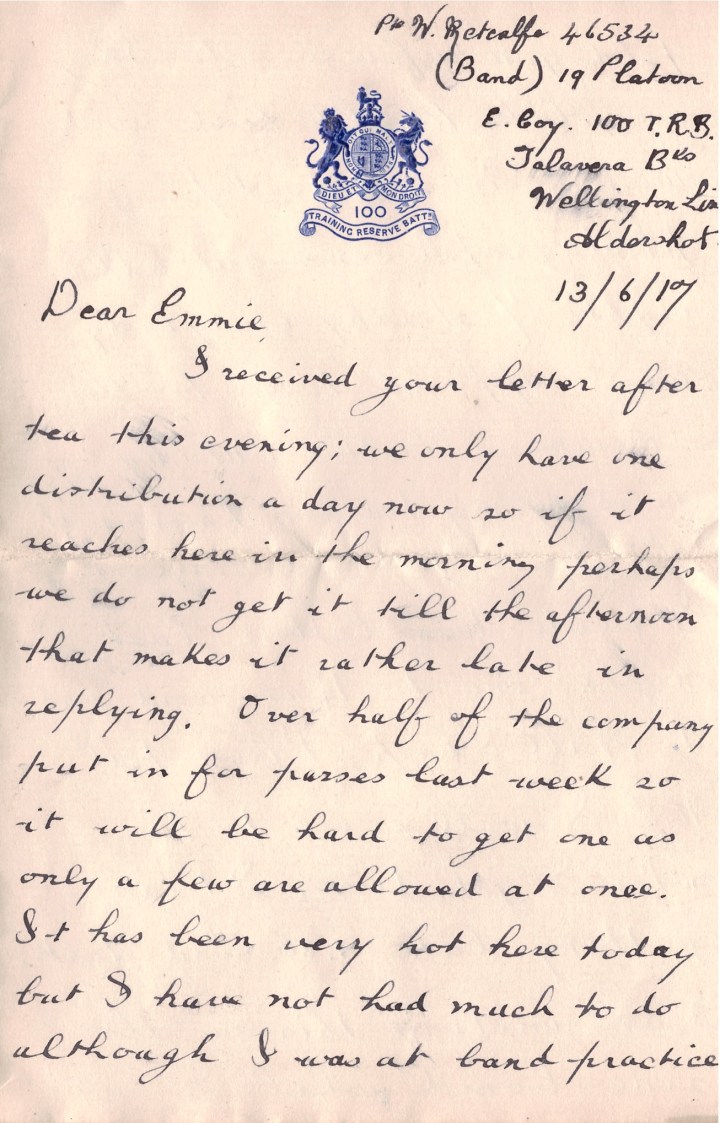 Pte W. Metcalfe 46534
(Band) 19 Platoon
E. Coy. 100 T.R.B.
Talavera Bks
Wellington Lin
Aldershot
13/6/17
DIEU ET MON DROIT
100
TRAINING RESERVE BATTN
Dear Emmie,
I received your letter after
tea this evening; we only have one
distribution a day now so if it
reaches here in the morning perhaps
we do not get it till the afternoon
that makes it rather late in
replying. Over half of the company
put in for passes last week so
it will be hard to get one as
only a few are allowed at once.
It has been very hot here today
but I have not had much to do
although I was at band practice